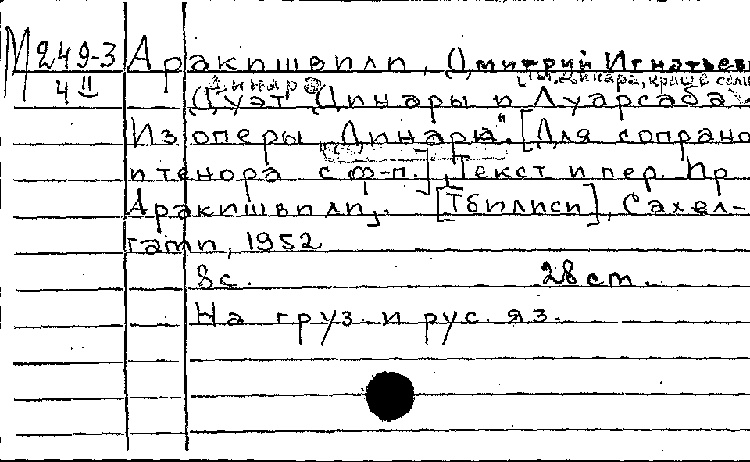 М 249-3
4 II
Аракишвили, Дмитрий Игнатьев
Динара, краше солн
Дуэт Динары и Луарсаба
Из оперы „Динара". [Для сопрано
и тенора с ф-п.] Текст и пер. Пр
Аракишвили. [Тбилиси], Сахел-
гами, 1952
8 с. 28 ст.
На груз. и рус. яз.